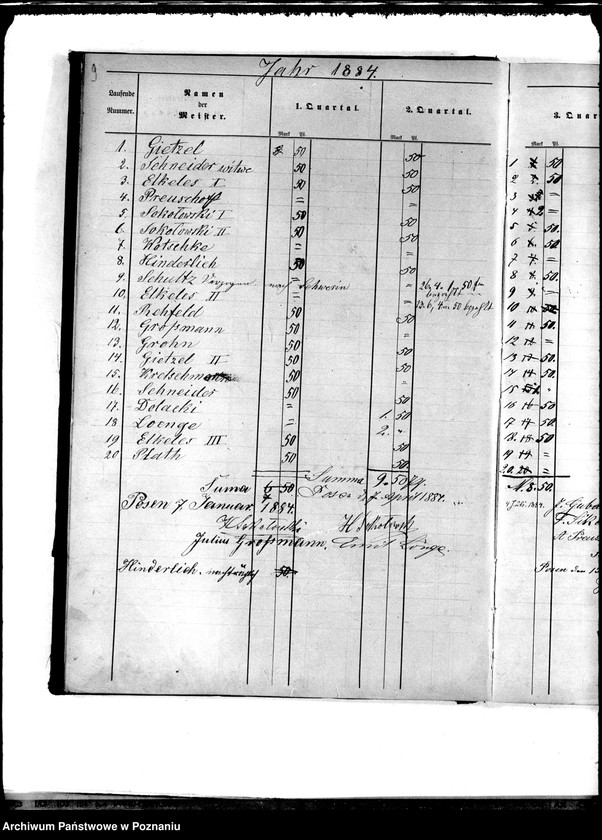 9
Jahr 1884.
Laufende Nummer. Namen der Meister. 1. Quartal. 2. Quartal. 3. Quar
Mark Pf. Mark Pf. Mark Pf.
1. Gietzel 50 50 1 50
2. Schneider witwe 50 50 2 50
3. Elkeles I 50 50 3
4. Preuschoff = = 4
5. Sokołowski I 50 50 5 50.
6. Sokołowski II 50 50 6 50.
7. Kotschke = = 7 =
8. Hinderlich 50 50 8 50.
9. Schultz Verzogen nach Schwerin 9
10. Elkeles II = 10
11. Rehfeld 50 50 11 50.
12. Großmann 50 50 12 =
13. Grohn 50 13 50.
14. Gietzel II 50 50 14 50.
15. Kretschmann 50 = 15
16. Schneider 50 50 16 50
17. Dolacki = 1. 50 17 50.
18 Loenge = 2. " 18 50
19 Elkeles III 50 50 19 =
20 Plath 50 50. 20 =
Suma 6 50 Summa 9. 50 M. 8. 50.
Posen 7 Januar 1884. Posen d. 7 April 1884.
H Sokołowski H Sokołowski
Julius Großmann. Emil Lönge.
Hinderlich nachträglich 50.
Posen den
Archiwum Państwowe w Poznaniu